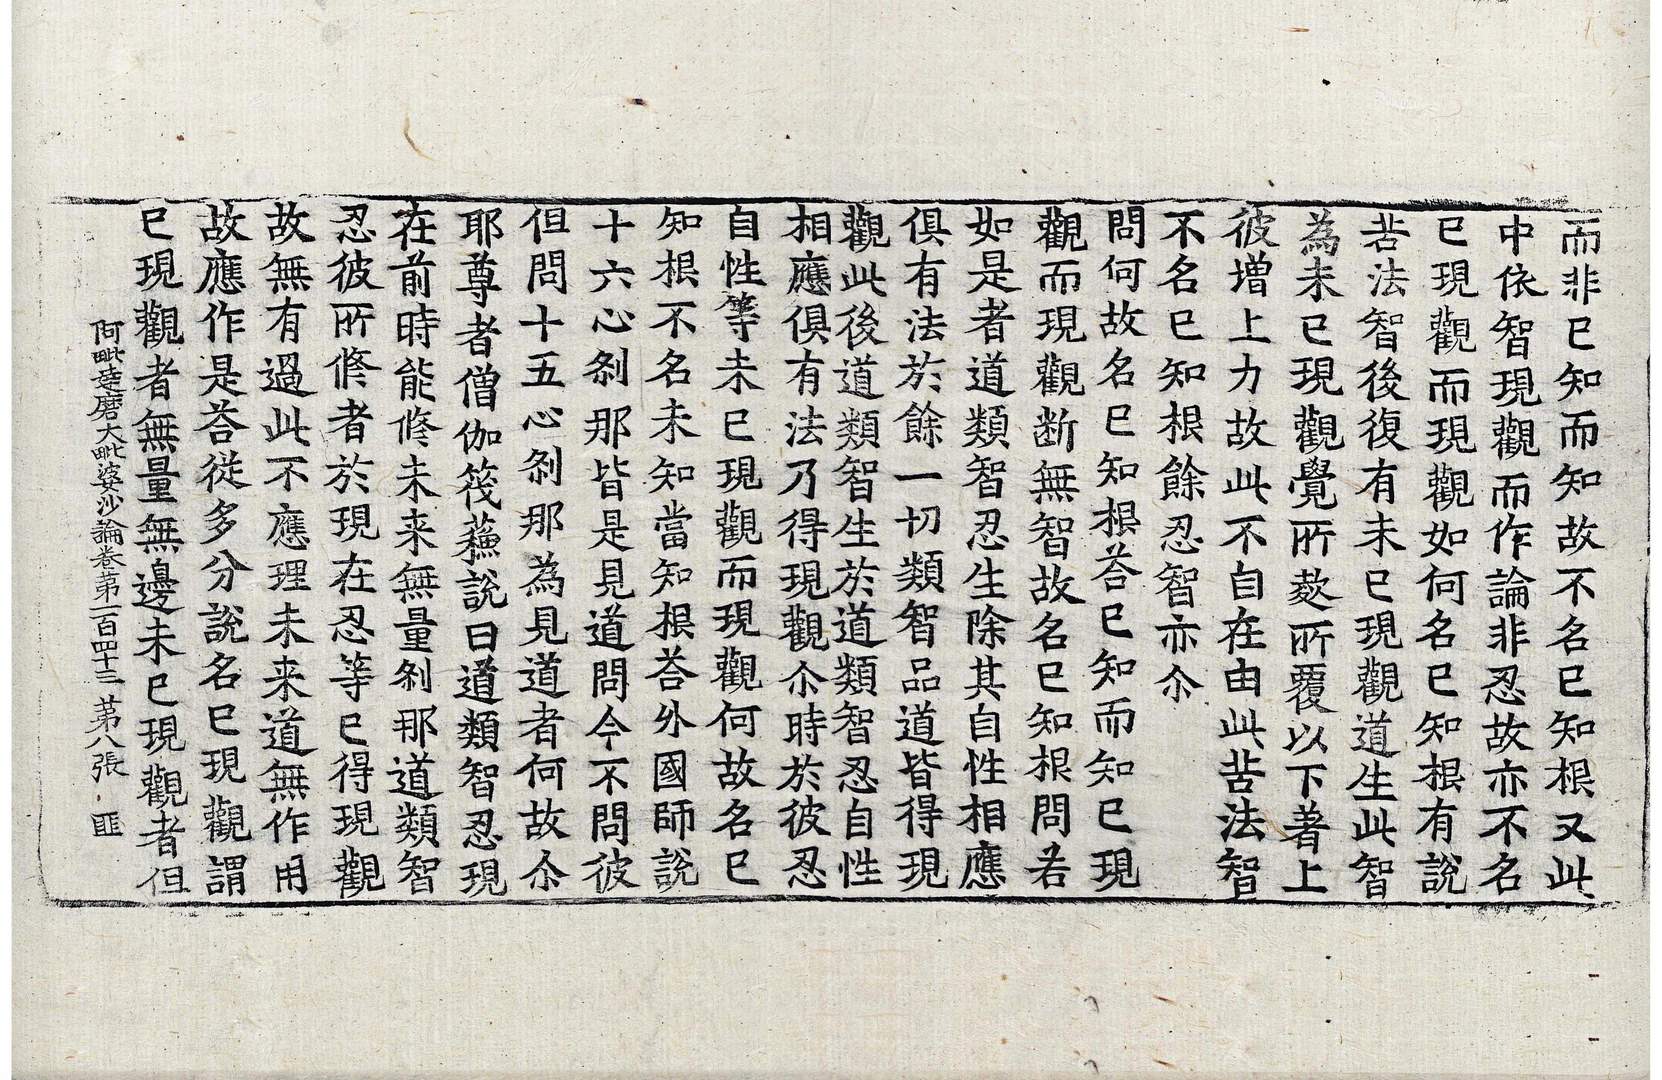 而非已知而知故不名已知根又此
中依智現觀而作論非忍故亦不名
已現觀而現觀如何名已知根有說
苦法智後復有未已現觀道生此智
為未已現觀覺所蔽所覆以下著上
彼增上力故此不自在由此苦法智
不名已知根餘忍智亦尒
問何故名已知根荅已知而知已現
觀而現觀断無智故名已知根問若
如是者道類智忍生除其自性相應
俱有法於餘一切類智品道皆得現
觀此後道類智生於道類智忍自性
相應俱有法乃得現觀尒時於彼忍
自性等未已現觀而現觀何故名已
知根不名未知當知根荅外國師說
十六心剎那皆是見道問今不問彼
但問十五心剎那為見道者何故尒
耶尊者僧伽筏蘓說曰道類智忍現
在前時能修未来無量剎那道類智
忍彼所修者於現在忍等已得現觀
故無有過此不應理未来道無作用
故應作是荅從多分說名已現觀謂
已現觀者無量無邊未已現觀者但
阿毗達磨大毗婆沙論卷第一百四十三 第八張 匪